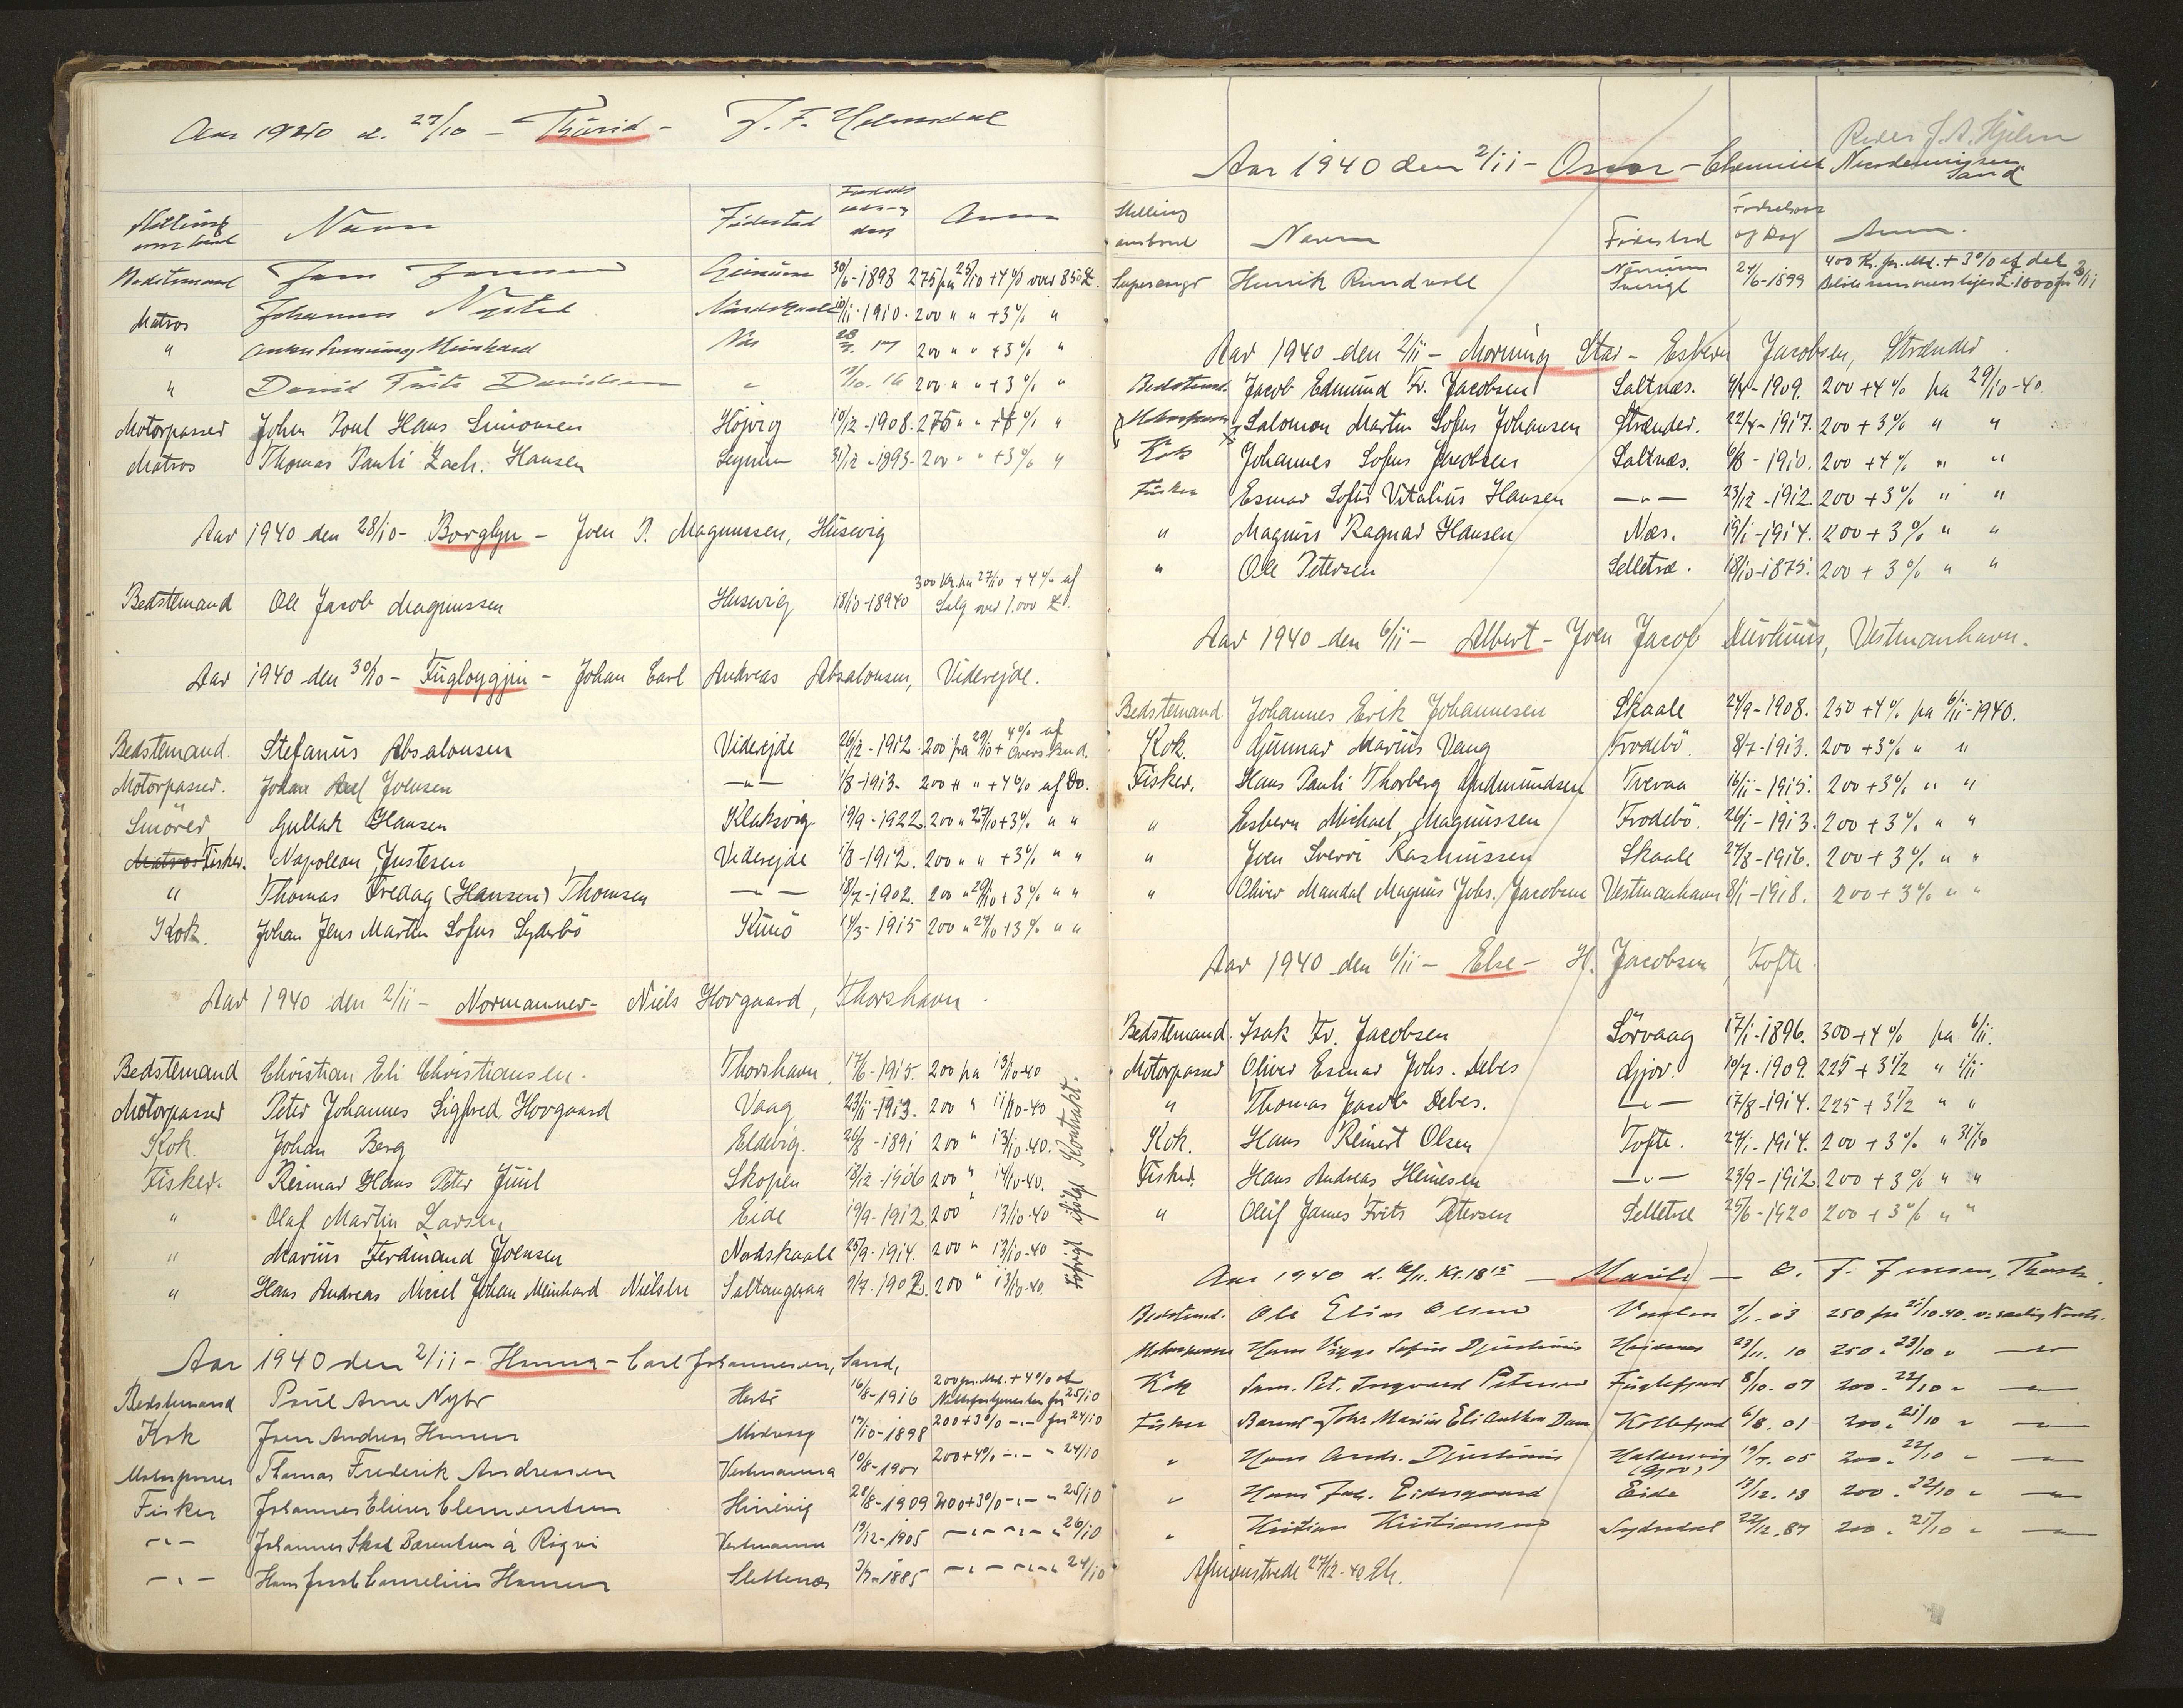 Aar 1940 d. 27/10 - Thurid - J. F. Holmsdal
Stilling ombord Navn Fødested Fødselsaar og dag Anm
Bedstemand Jens Jensen 30/6-1893 275 fra 25/10 +4% over 850£.
Matros Johannes Nysted Nordskaale 10/11-1910. 200 " " +3% "
" Meinhard Næs 28/7. 17 200 " " +3% "
" David Frits Davidsen " 17/10. 16 200 " " +3% "
Motorpasser Johan Poul Hans Simonsen Höjvig 10/12-1908. 275 " " +4% "
Matros Thomas Pauli Zach. Hansen 31/12-1893. 200 " " +3% "
Aar 1940 den 28/10 - Borglyn - Joen P. Magnussen, Húsevig
Bedstemand Ole Jacob Magnussen Husevig 18/10-1894 300 Kr. fra 27/10 + 4% af Salg over 1.000 £.
Aar 1940 den 30/10 - Fugloyggjin - Johan Carl Andreas Absalonsen, Viderejde.
Bedstemand. Stefanús Absalonsen Viderejde 26/12-1912. 200 fra 29/10 + 4% af Overskud.
Motorpasser. Johan Axel Joensen —"— 1/8-1913- 200 " " +4% af Do.
Smörer Gullak Hansen Klaksvig. 19/9-1922. 200 " 27/10 +3% " "
Matros Fisker. Napoleon Justesen Viderejde 1/8-1912. 200 " " +3% " "
" Thomas Fredag (Hansen) Thomsen —"— 18/7-1902. 200 " 29/10 +3% " "
Kok. Johan Jens Martin Sofus Syderbö Kunö 14/3-1915 200 " 29/10 +3% " "
Aar 1940 den 2/11 - Normanner - Niels Hovgaard, Thorshavn.
Bedstemand Christian Eli Christiansen. Thorshavn. 17/6-1915. 200 fra 13/10-40
Motorpasser Peter Johannes Sigfred Hovgaard Vaag 23/11-1913. 200 " 11/10-40
Kok. Johan Berg Eldevig. 26/8-1891 200 " 13/10-40.
Fisker. Reimar Hans Peter Júúl Skopen 18/12-1906 200 " 14/10-40.
" Olaf Martin Larsen Eide 19/9-1912 200 " 13/10-40
" Marius Ferdinand Joensen Nordskaale 25/9-1914. 200 " 13/10-40
" Hans Andreas Nicol Johan Meinhard Nielsen Saltangaraa 9/7-1902. 200 " 13/10-40.
iflg Kontrakt.
Aar 1940 den 2/11 - Hanna - Carl Johannesen, Sand,
Bedstemand Poul Arne Nybo 16/8-1916 200 pr. Md. + 4% af Nettofortjenesten fra 25/10
Kok Joen Andreas Hansen Midvaag 17/10-1898 200+3% —"— fra 24/10
Motorpasser Thomas Frederik Andreasen Vestmanna 10/8-1901 200+4% —"— " 24/10
Fisker Johannes Elieser Clementsen 28/8-1909 200+3% —"— " 25/10
—"— Johannes Skaal Bærentsen á Rigvi Vestmanna 19/12-1905 —"— —"— " 26/10
—"— Hans Jacob Cornelius Hansen Slettenæs 7/7-1885 —"— —"— " 24/10
Reder J. A. Hjelm
Aar 1940 den 2/11 - Oscar - Clemen Nicodemussen Sand
Stilling ombord Navn Fødested Fødselsaar og Dag Anm.
Henrik Rundvall Sverige 24/6-1899 400 Kr. pr. Md. + 3% af det £ 1800 fra 2/11
Aar 1940 den 2/11 - Morning Star - Esbern Jacobsen, Strænder.
Bedstemd. Jacob Edmund Fr. Jacobsen Saltnæs. 9/4-1909. 200 +4% fra 29/10-40.
Salomon Martin Sofus Johansen Strænder. 22/4-1917. 200 +3% " "
Kok Johannes Sofus Jacobsen Saltnæs. 6/8-1910. 200 +4% " "
Fisker Esmar Sofus Vitalius Hansen —"— 23/12-1912. 200 +3% " "
" Magnús Ragnar Hansen Næs. 19/1-1914. 200 +3% " "
" Ole Petersen Selletræ. 18/10-1875. 200 +3% " "
Aar 1940 den 6/11 - Albert - Joen Jacob Durhuus, Vestmanhavn.
Bedstemand Johannes Erik Johannesen Skaale 24/9-1908. 250 +4% fra 6/11-1940.
Kok. Gunnar Marius Vang Frodebö. 8/7-1913. 200 +3% " "
Fisker. Hans Pauli Thorberg Gudmundsen Tveraa 16/11-1915. 200 +3% " "
" Esbern Michael Magnussen Frodebö. 26/1-1913. 200 +3% " "
" Joen Sverri Rasmussen Skaale 27/8-1916. 200 +3% " "
" Oliver Mandal Magnus Johs. Jacobsen Vestmanhavn 8/1-1918. 200 +3% " "
Aar 1940 den 6/11 - Else - H. Jacobsen, Tofte.
Bedstemand. Isak Fr. Jacobsen Sörvaag 17/1-1896. 300 +4% fra 6/11.
Motorpasser Oliver Esmar Johs. Debes Gjov. 10/7-1909. 225 + 3 1/2 " 1/11
" Thomas Jacob Debes. —"— 17/8-1914. 225 + 3 1/2 " "
Kok. Hans Reinert Olsen Tofte. 24/1-1914. 200 +3% " 31/10
Fisker. Hans Andreas Heinesen —"— 23/9-1912. 200 +3% " "
" Oleif James Frits Petersen Selletræ 25/6-1920 200 +3% " "
Aar 1940 d. 6/11. Kl. 18 15 - - O. F. Joensen, Thorsh.
Bedstemd. Ole Elias Olsen 7/1.03 250 fra 21/10.40.
Motorpasser Hans Viggo Sofus Djurhuus 23/11. 10 250 " 23/10 " —"—
Kok Sam. Pet. Ingvard Petersen Fuglefjord 8/10. 07 200 " 22/10 " —"—
Fisker Johs. Marius Eli Anthon Dam Kollefjord 6/8. 01 200 " 21/10 " —"—
" Hans Andr. Djurhuus Haldersvig (Gjov) 19/7. 05 200 " 22/10 " —"—
" Hans Jac. Eidesgaard Eide 13/12. 13 200 " 22/10 " —"—
" Kristian Kristiansen Sydredal 22/12. 87 200 " 21/10 " —"—
Afmönstrede 27/12-40